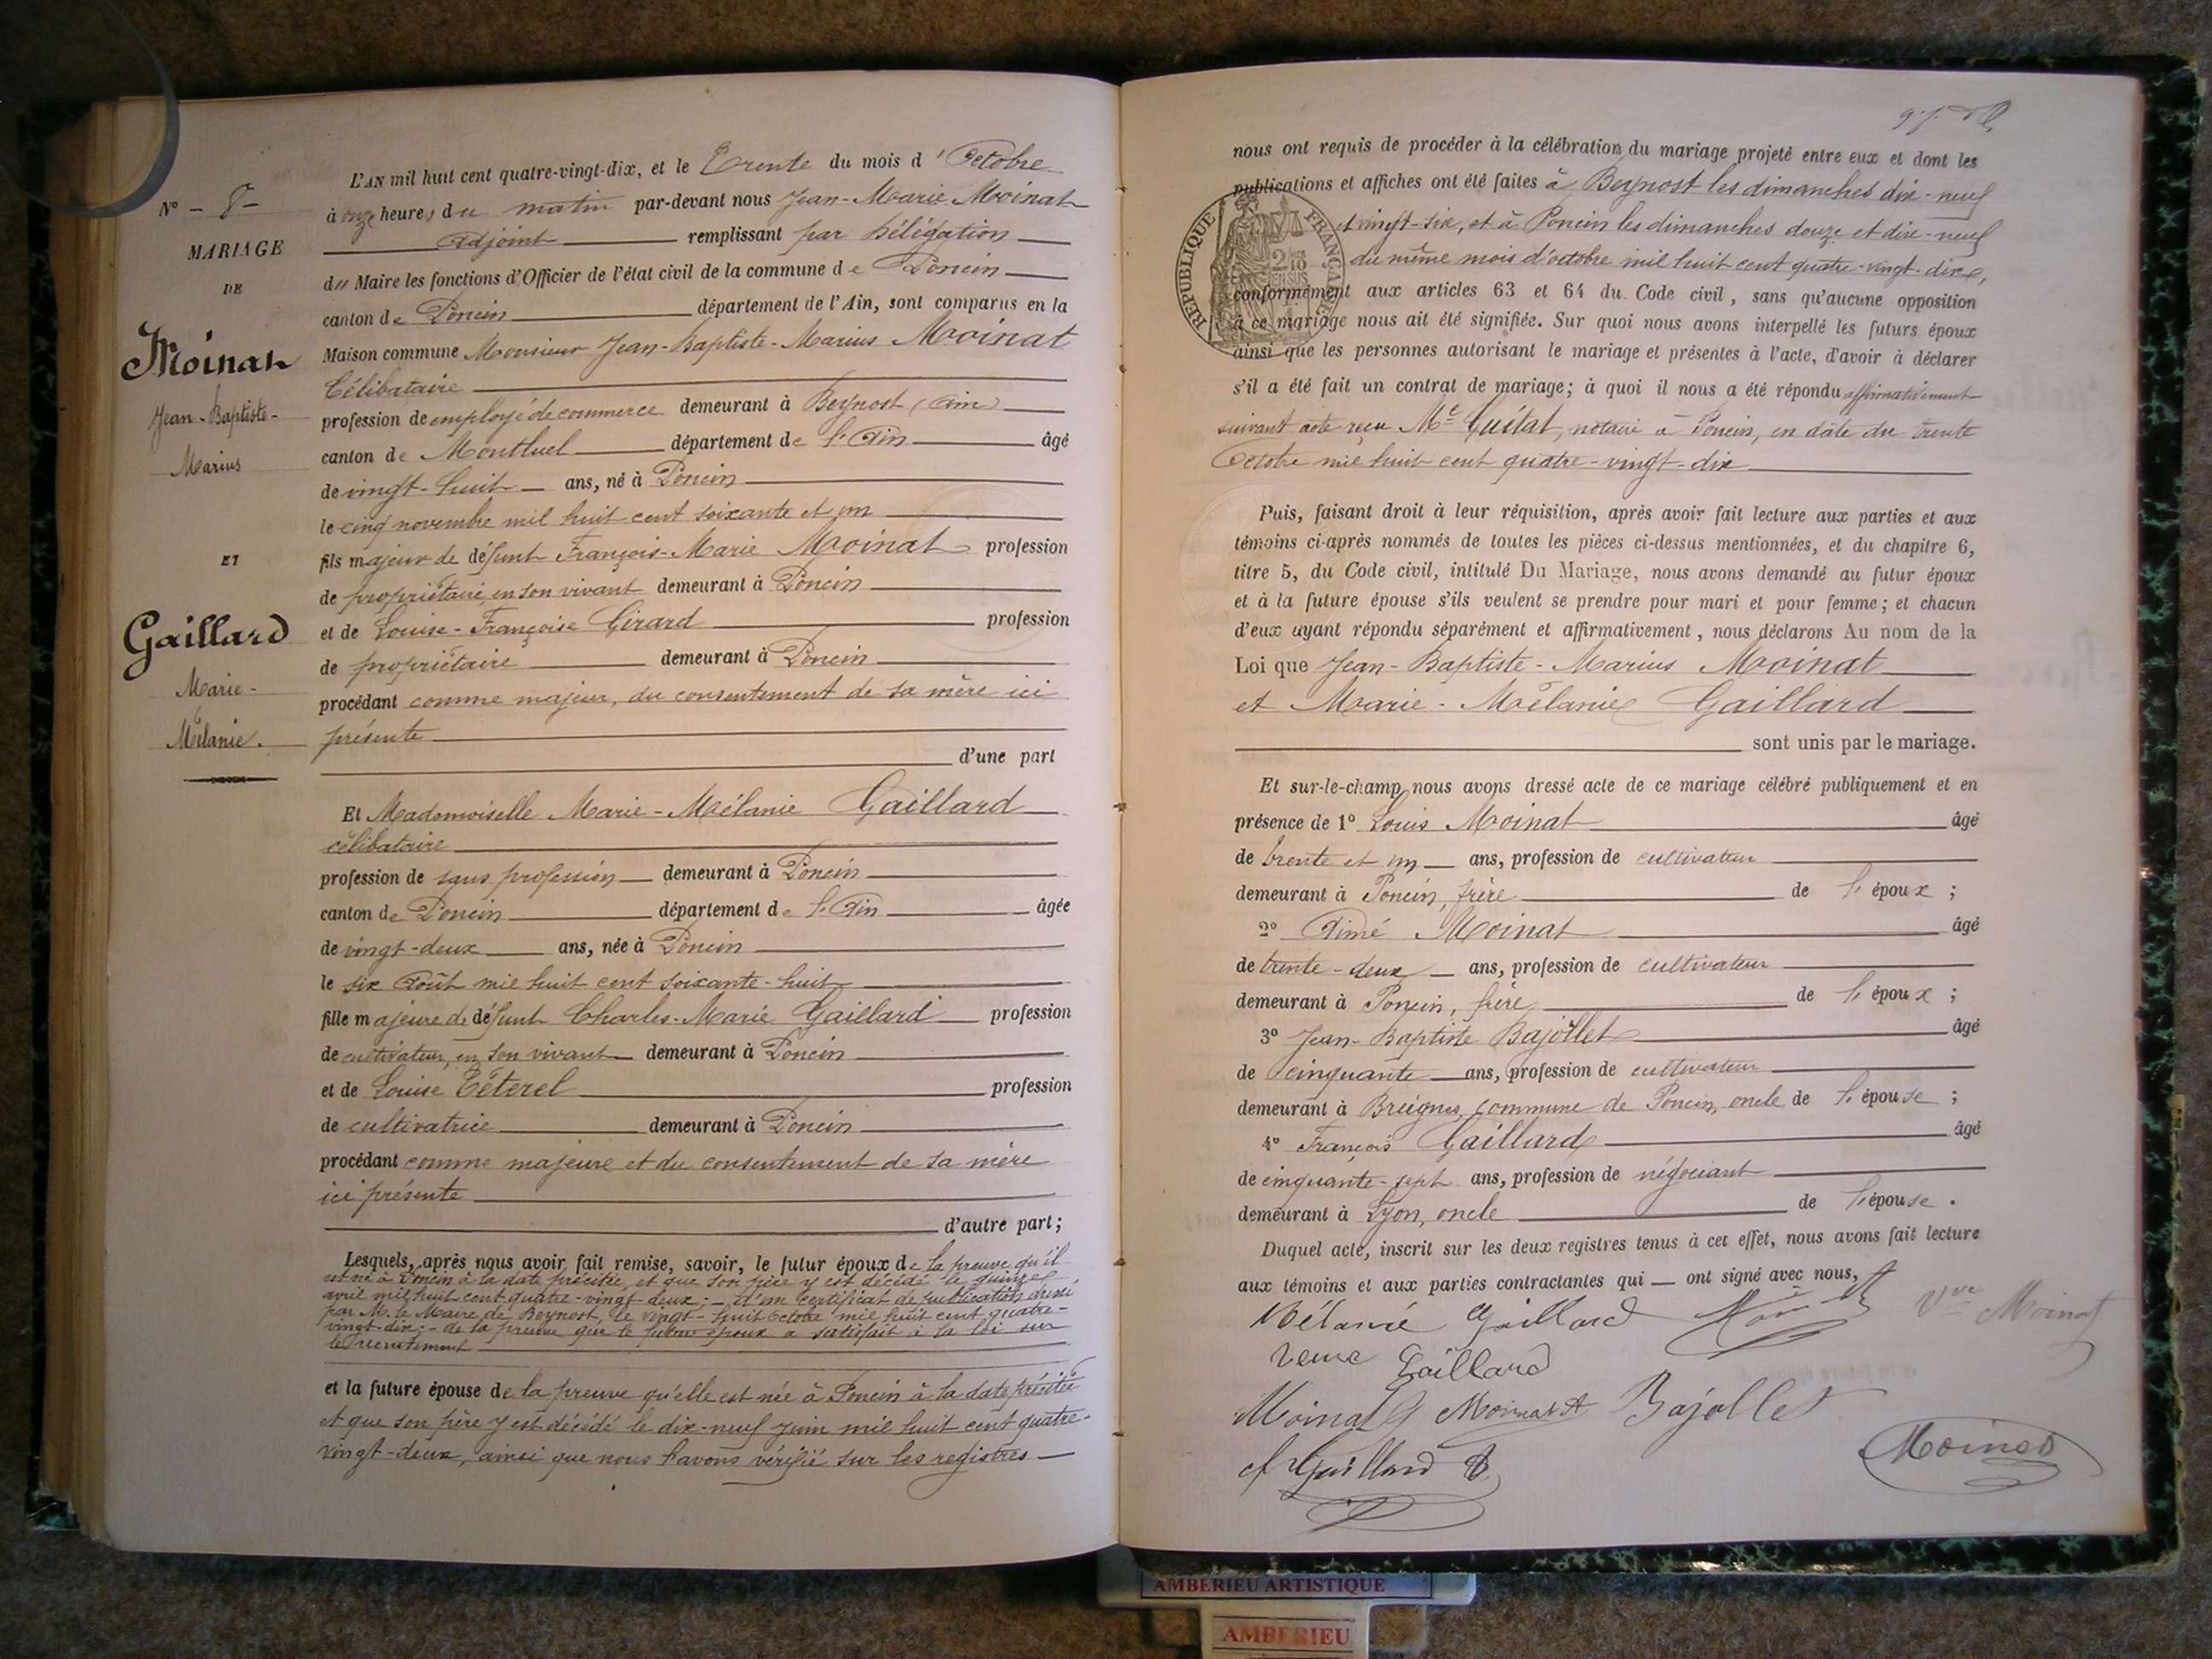 N° - 8 -
MARIAGE
DE
Moinat
Jean-Baptiste-
Marius
ET
Gaillard
Marie-
Mélanie.
L'AN mil huit cent quatre-vingt-dix, et le Trente du mois d'Octobre
à onze heures du matin par-devant nous Jean-Marie Moinat
adjoint remplissant par délégation
du Maire les fonctions d'Officier de l'état civil de la commune de Poncin
canton de Poncin département de l'Ain, sont comparus en la
Maison commune Monsieur Jean-Baptiste-Marius Moinat
Célibataire
profession de employé de commerce demeurant à Beynost (Ain)
canton de Montluel département de l'Ain âgé
de vingt-huit ans, né à Poncin
le cinq novembre mil huit cent soixante et un
fils majeur de défunt François-Marie Moinat profession
de propriétaire, en son vivant demeurant à Poncin
et de Louise-Françoise Girard profession
de propriétaire demeurant à Poncin
procédant comme majeur, du consentement de sa mère ici
présente
d'une part
Et Mademoiselle Marie-Mélanie Gaillard
célibataire
profession de sans profession demeurant à Poncin
canton de Poncin département de l'Ain âgée
de vingt-deux ans, née à Poncin
le six Août mil huit cent soixante-huit
fille majeure de défunt Charles-Marie Gaillard profession
de cultivateur, en son vivant demeurant à Poncin
et de Louise Téterel profession
de cultivatrice demeurant à Poncin
procédant comme majeure et du consentement de sa mère
ici présente
d'autre part;
Lesquels, après nous avoir fait remise, savoir, le futur époux de la preuve qu'il
est né à Poncin à la date précitée, et que son père y est décédé le quinze
avril mil huit cent quatre-vingt deux; - d'un certificat de publication dressé
par M. le Maire de Beynost, le vingt-huit octobre mil huit cent quatre-
vingt-dix; - de la preuve que le futur époux a satisfait à la loi sur
le recrutement
et la future épouse de la preuve qu'elle est née à Poncin à la date précitée
et que son père y est décédé le dix-neuf juin mil huit cent quatre-
vingt-deux, ainsi que nous l'avons vérifié sur les registres
nous ont requis de procéder à la célébration du mariage projeté entre eux et dont les
publications et affiches ont été faites à Beynost les dimanches dix-neuf
et vingt-six, et à Poncin les dimanches douze et dix-neuf
du même mois d'octobre mil huit cent quatre-vingt-dix,
conformément aux articles 63 et 64 du Code civil, sans qu'aucune opposition
à ce mariage nous ait été signifiée. Sur quoi nous avons interpellé les futurs époux
ainsi que les personnes autorisant le mariage et présentes à l'acte, d'avoir à déclarer
s'il a été fait un contrat de mariage; à quoi il nous a été répondu affirmativement
suivant acte reçu Me Guitat, notaire à Poncin, en date du trente
Octobre mil huit cent quatre-vingt-dix
RÉPUBLIQUE FRANÇAISE
Puis, faisant droit à leur réquisition, après avoir fait lecture aux parties et aux
témoins ci-après nommés de toutes les pièces ci-dessus mentionnées, et du chapitre 6,
titre 5, du Code civil, intitulé Du Mariage, nous avons demandé au futur époux
et à la future épouse s'ils veulent se prendre pour mari et pour femme; et chacun
d'eux ayant répondu séparément et affirmativement, nous déclarons Au nom de la
Loi que Jean-Baptiste-Marius Moinat
et Marie-Mélanie Gaillard
sont unis par le mariage.
Et sur-le-champ nous avons dressé acte de ce mariage célébré publiquement et en
présence de 1° Louis Moinat âgé
de trente et un ans, profession de cultivateur
demeurant à Poncin, frère de l'époux;
2° Aimé Moinat âgé
de trente-deux ans, profession de cultivateur
demeurant à Poncin, frère de l'époux;
3° Jean-Baptiste Bajollet âgé
de cinquante ans, profession de cultivateur
demeurant à Breignes, commune de Poncin, oncle de l'épouse;
4° François Gaillard âgé
de cinquante-sept ans, profession de négociant
demeurant à Lyon, oncle de l'épouse.
Duquel acte, inscrit sur les deux registres tenus à cet effet, nous avons fait lecture
aux témoins et aux parties contractantes qui ont signé avec nous,
Mélanie Gaillard Moinat Vve Moinat
veuve Gaillard
Moinat Moinat A Bajollet
Gaillard
Moinat
AMBERIEU ARTISTIQUE
AMBERIEU